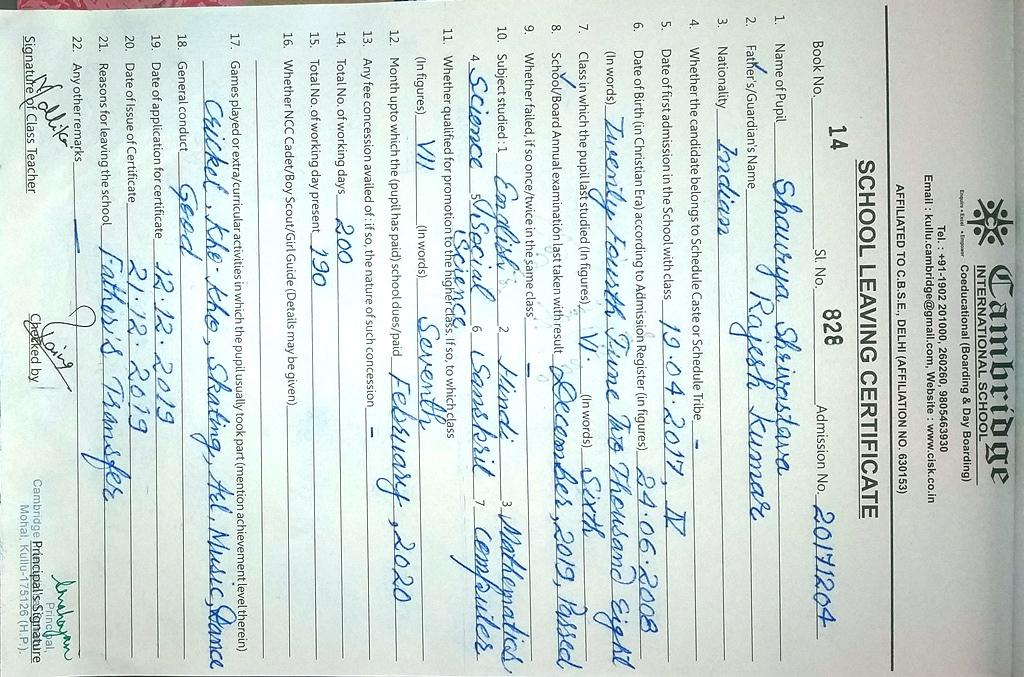 Cambridge
INTERNATIONAL SCHOOL
Enquire • Excel • Empower Coeducational (Boarding & Day Boarding)
Tel. : +91-1902 201000, 260260, 9805463930
Email : kullu.cambridge@gmail.com, Website : www.cisk.co.in
AFFILIATED TO C.B.S.E., DELHI (AFFILIATION NO. 630153)
SCHOOL LEAVING CERTIFICATE
Book No. 14 Sl. No. 828 Admission No. 2017/1204
1. Name of Pupil Shaurya Shrivastava
2. Father's/Guardian's Name Rajesh Kumar
3. Nationality Indian
4. Whether the candidate belongs to Schedule Caste or Schedule Tribe -
5. Date of first admission in the School with class 19.04.2017, IV
6. Date of Birth (in Christian Era) according to Admission Register (in figures) 24.06.2008
(In words) Twenty fourth June Two Thousand Eight
7. Class in which the pupil last studied (In figures) VI. (In words) Sixth
8. School/Board Annual examination last taken with result December, 2019, Passed
9. Whether failed, if so once/twice in the same class -
10. Subject studied : 1 English 2 Hindi 3 Mathematics
4 Science 5 Social Science 6 Sanskrit 7 Computer
11. Whether qualified for promotion to the higher class. If so, to which class
(In figures) VII (In words) Seventh
12. Month upto which the (pupil has paid) school dues/paid February, 2020
13. Any fee concession availed of : if so, the nature of such concession -
14. Total No. of working days 200
15. Total No. of working day present 190
16. Whether NCC Cadet/Boy Scout/Girl Guide (Details may be given)
17. Games played or extra/curricular activities in which the pupil usually took part (mention achievement level therein)
Cricket, Kho-Kho, Skating, Ad. Music, Dance
18. General conduct Good
19. Date of application for certificate 12.12.2019
20. Date of Issue of Certificate 21.12.2019
21. Reasons for leaving the school Father's Transfer
22. Any other remarks -
Signature of Class Teacher Checked by Principal's Signature
Principal,
Cambridge
Mohal, Kullu-175126 (H.P.)